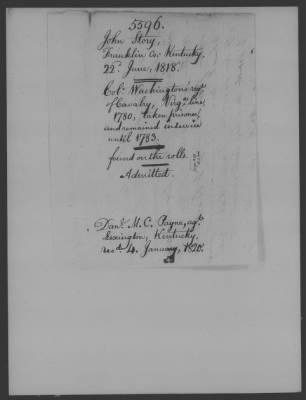 5596.
John Story,
Franklin Co. Kentucky.
22d June, 1818.
Col. Washington's regt
of Cavalry, Virga line,
1780, taken prisoner,
and remained in service
until 1783.
found on the rolls.
Admitted.
Danl. M. C. Payne, agt.
Lexington, Kentucky.
recd. 4. January, 1820.